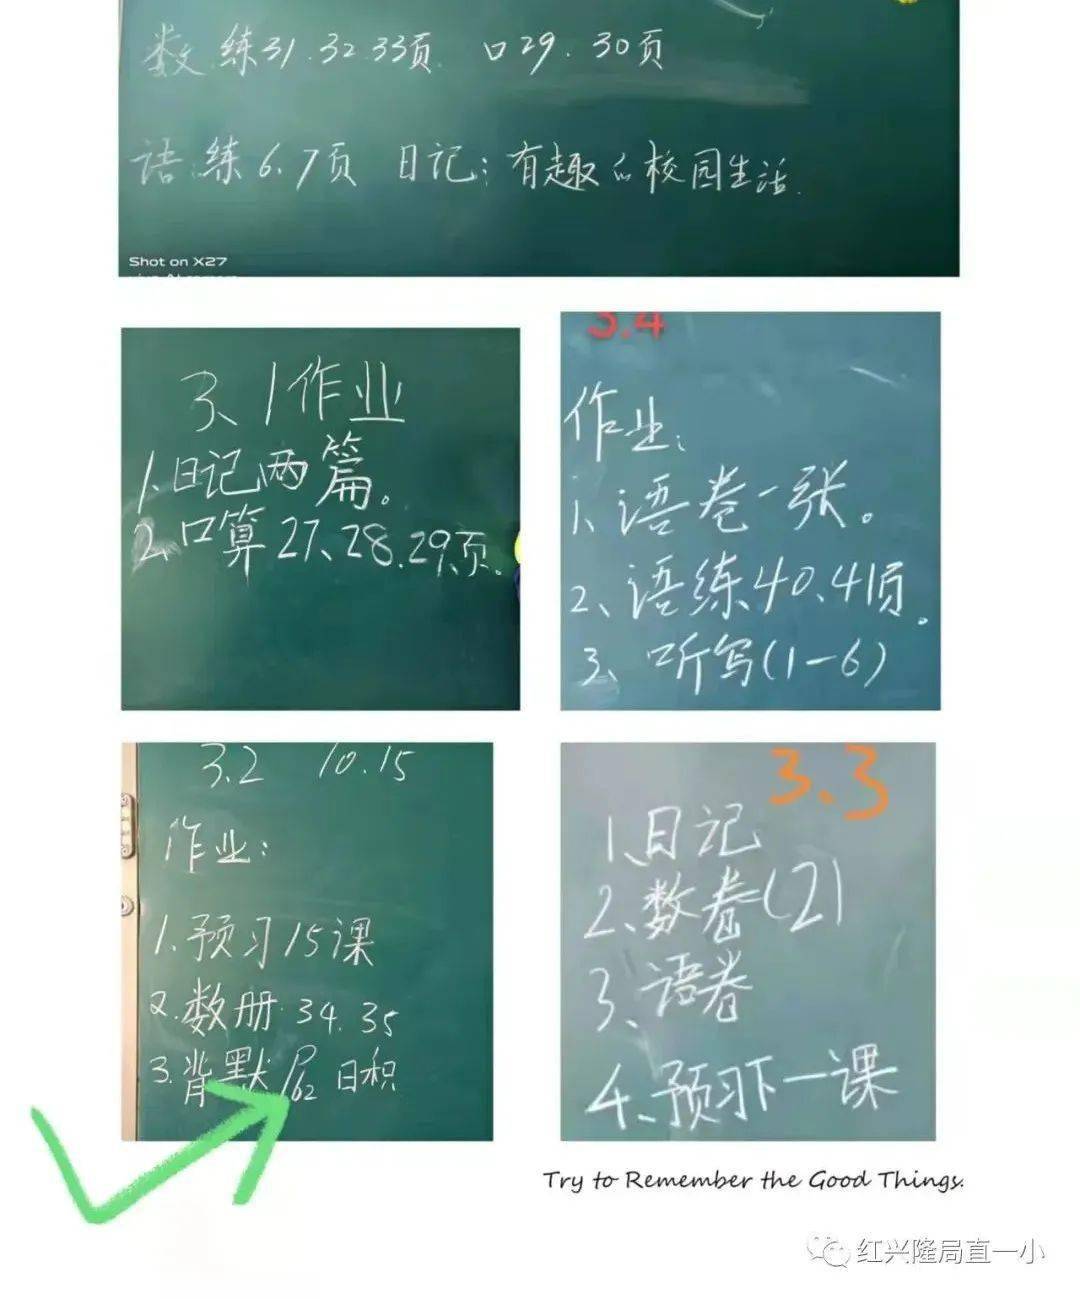 数 练31.32.33页. 口29.30页
语:练6.7页 日记:有趣的校园生活.
Shot on X27
3、1作业
1.日记两篇。
2.口算27、28.29页。
3.4
作业:
1、语卷一张。
2、语练40、41页。
3、听写(1-6)
3.2 10.15
作业:
1.预习15课
2.数册 34.35
3.背默P62 日积
3.3
1、日记
2、数卷(2)
3、语卷
4、预习下一课
Try to Remember the Good Things.
红兴隆局直一小